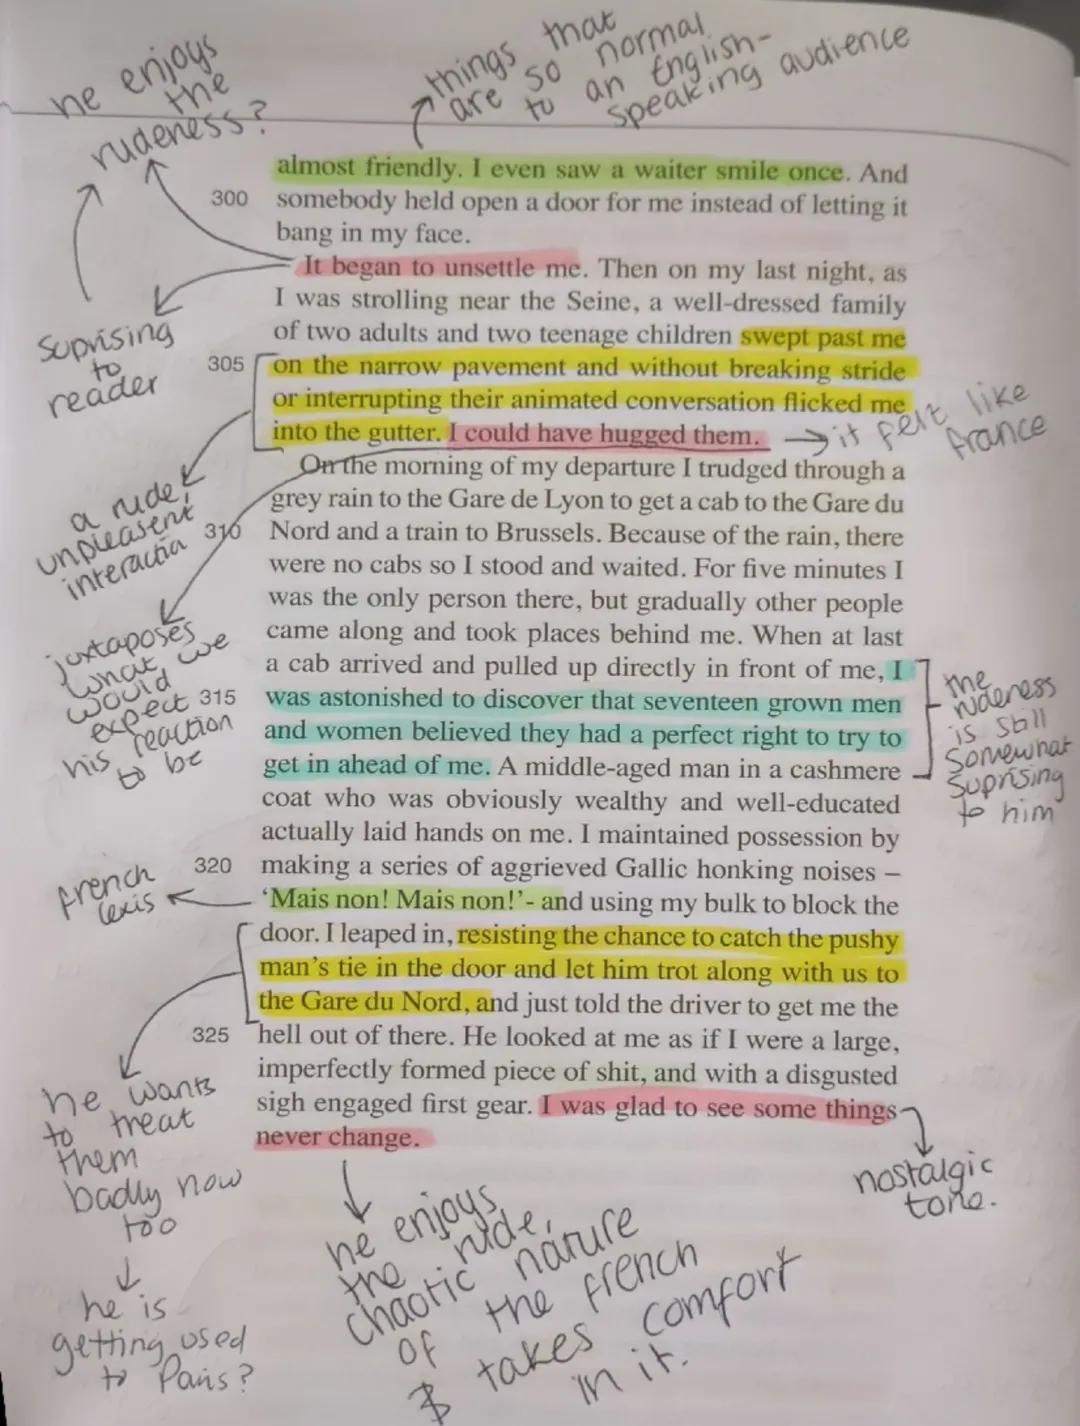 he enjoys
the
rudeness?
things that
are so normal
to an English-
speaking audience
almost friendly. I even saw a waiter smile once. And
300 somebody held open a door for me instead of letting it
bang in my face.
It began to unsettle me. Then on my last night, as
I was strolling near the Seine, a well-dressed family
of two adults and two teenage children swept past me
305 on the narrow pavement and without breaking stride
or interrupting their animated conversation flicked me
into the gutter. I could have hugged them.
On the morning of my departure I trudged through a
grey rain to the Gare de Lyon to get a cab to the Gare du
310 Nord and a train to Brussels. Because of the rain, there
were no cabs so I stood and waited. For five minutes I
was the only person there, but gradually other people
came along and took places behind me. When at last
a cab arrived and pulled up directly in front of me, I
315 was astonished to discover that seventeen grown men
and women believed they had a perfect right to try to
get in ahead of me. A middle-aged man in a cashmere
coat who was obviously wealthy and well-educated
actually laid hands on me. I maintained possession by
320 making a series of aggrieved Gallic honking noises –
‘Mais non! Mais non!’- and using my bulk to block the
door. I leaped in, resisting the chance to catch the pushy
man's tie in the door and let him trot along with us to
the Gare du Nord, and just told the driver to get me the
325 hell out of there. He looked at me as if I were a large,
imperfectly formed piece of shit, and with a disgusted
sigh engaged first gear. I was glad to see some things
never change.
Suprising
to
reader
it felt like
france
a rude,
unpleasent
interaction
juxtaposes
what we
would
expect
his reaction
to be
the
rudeness
is still
somewhat
suprising
to him
french
lexis
he wants
to treat
them
badly now
too
he is
getting used
to Paris?
nostalgic
tone.
he enjoys
the rude,
chaotic nature
of the french
& takes comfort
in it.